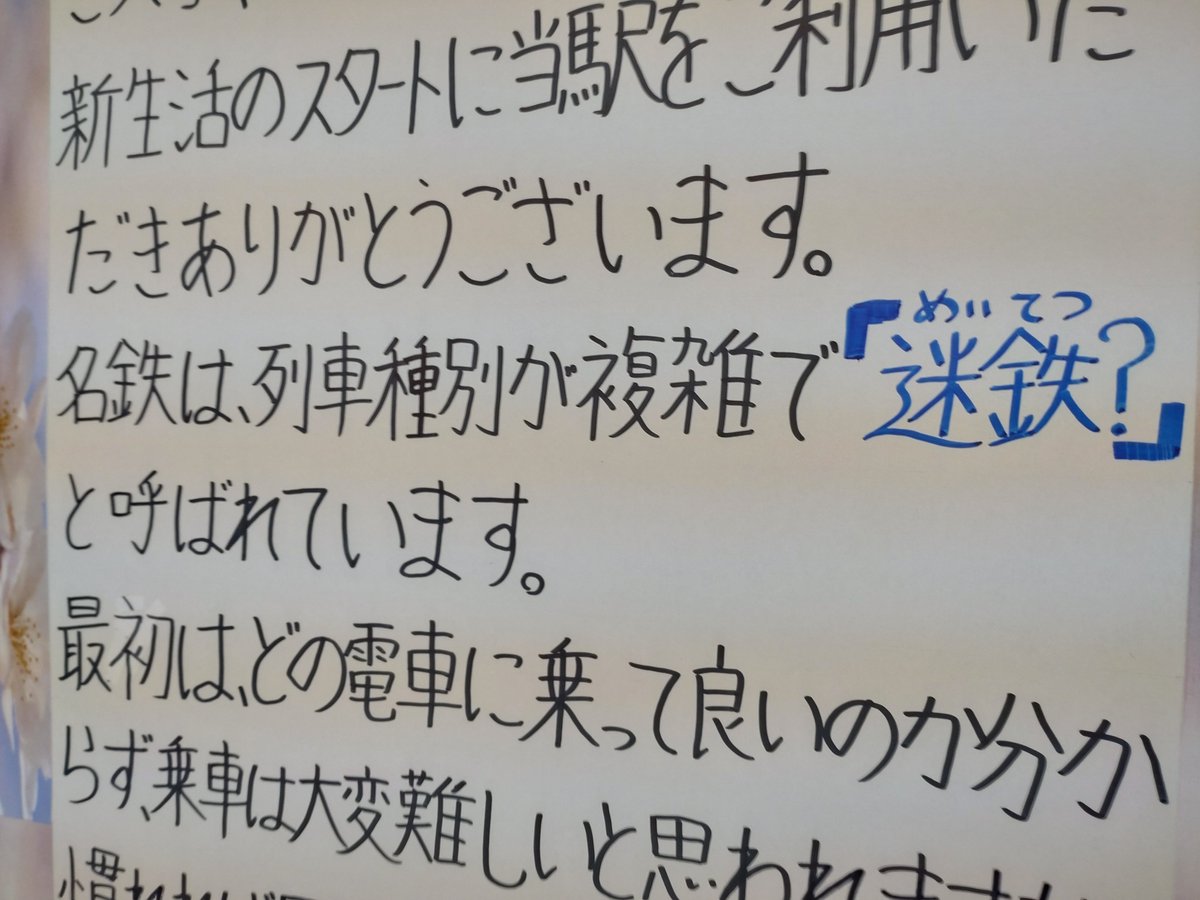 新生活のスタートに当駅をご利用いた
だきありがとうございます。
めいてつ
名鉄は、列車種別が複雑で『迷鉄?』
と呼ばれています。
最初は、どの電車に乗って良いのか分か
らず、乗車は大変難しいと思われます
慣れれば